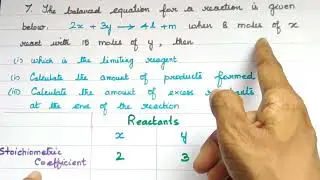 7. The balanced equation for a reaction is given
below. 2x + 3y → 4l + m when 8 moles of x
react with 15 moles of y, then
(i) which is the limiting reagent
(ii) Calculate the amount of products formed
(iii) Calculate the amount of excess
at the end of the reaction
Reactants
x y
Stoichiometric
Coefficient 2 3